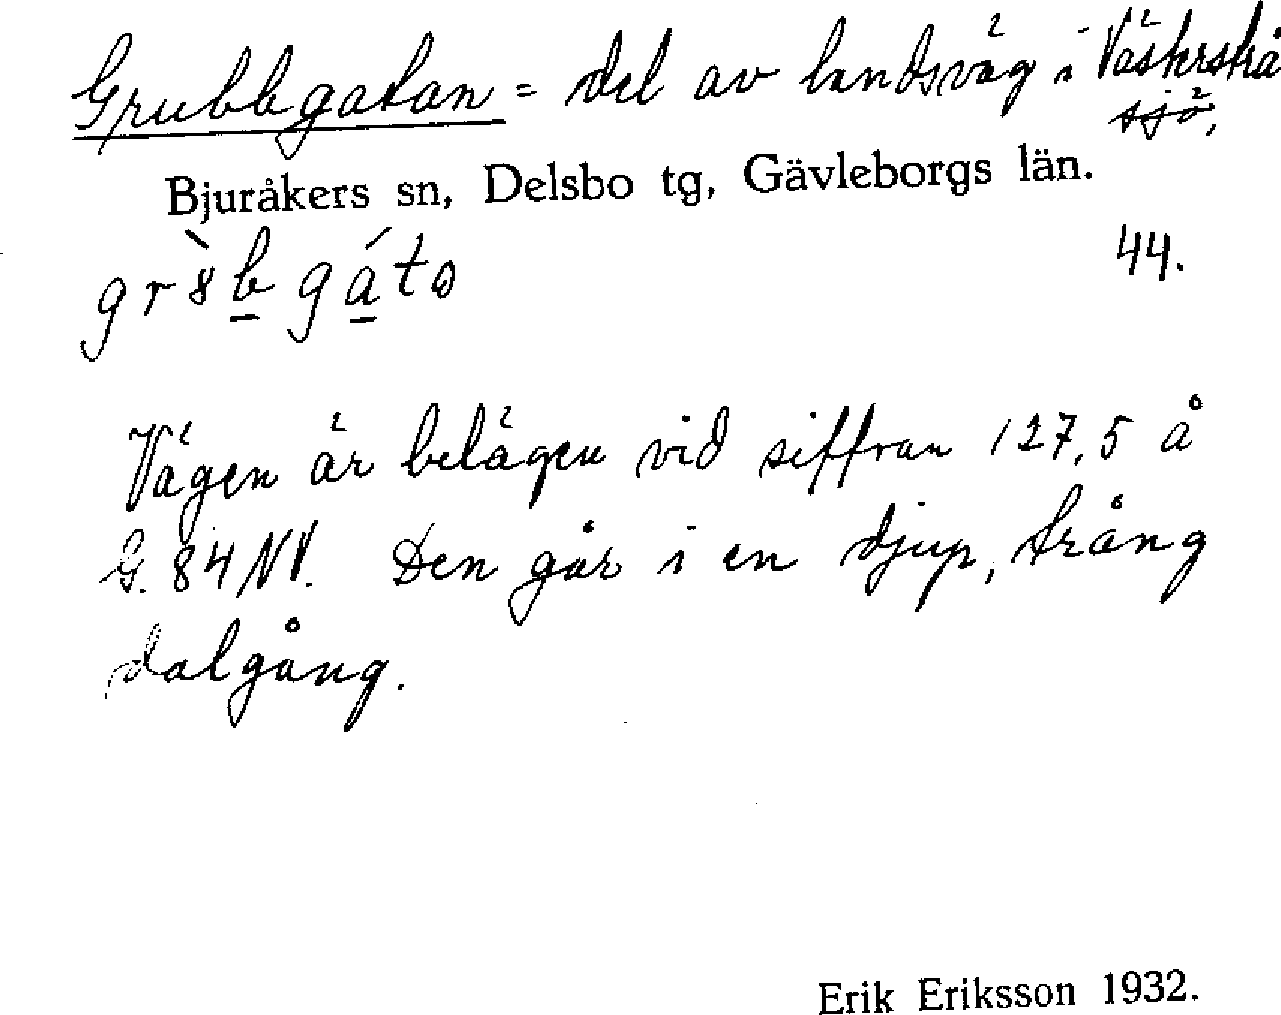 Grubbgatan = del av landsväg i Västerstrå
sjö,
Bjuråkers sn, Delsbo tg, Gävleborgs län.
44.
Vägen är belägen vid siffran 127,5 å
G. 84 NV. Den går i en djup, trång
dalgång.
Erik Eriksson 1932.